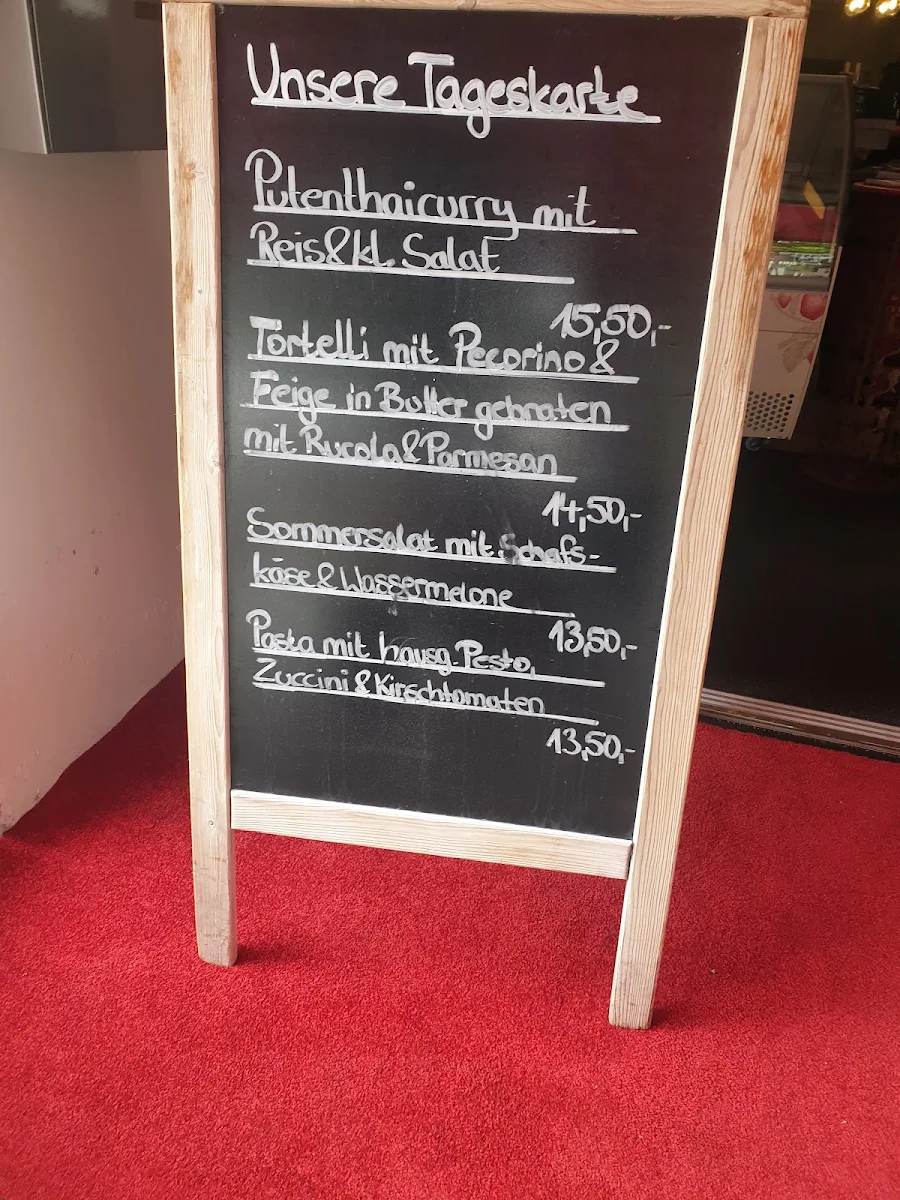 Unsere Tageskarte
Putenthaicurry mit
Reis & kl. Salat
15,50,-
Tortelli mit Pecorino &
Feige in Butter gebraten
mit Rucola & Parmesan
14,50,-
Sommersalat mit Schafs-
käse & Wassermelone
13,50,-
Pasta mit hausg. Pesto,
Zuccini & Kirschtomaten
13,50,-